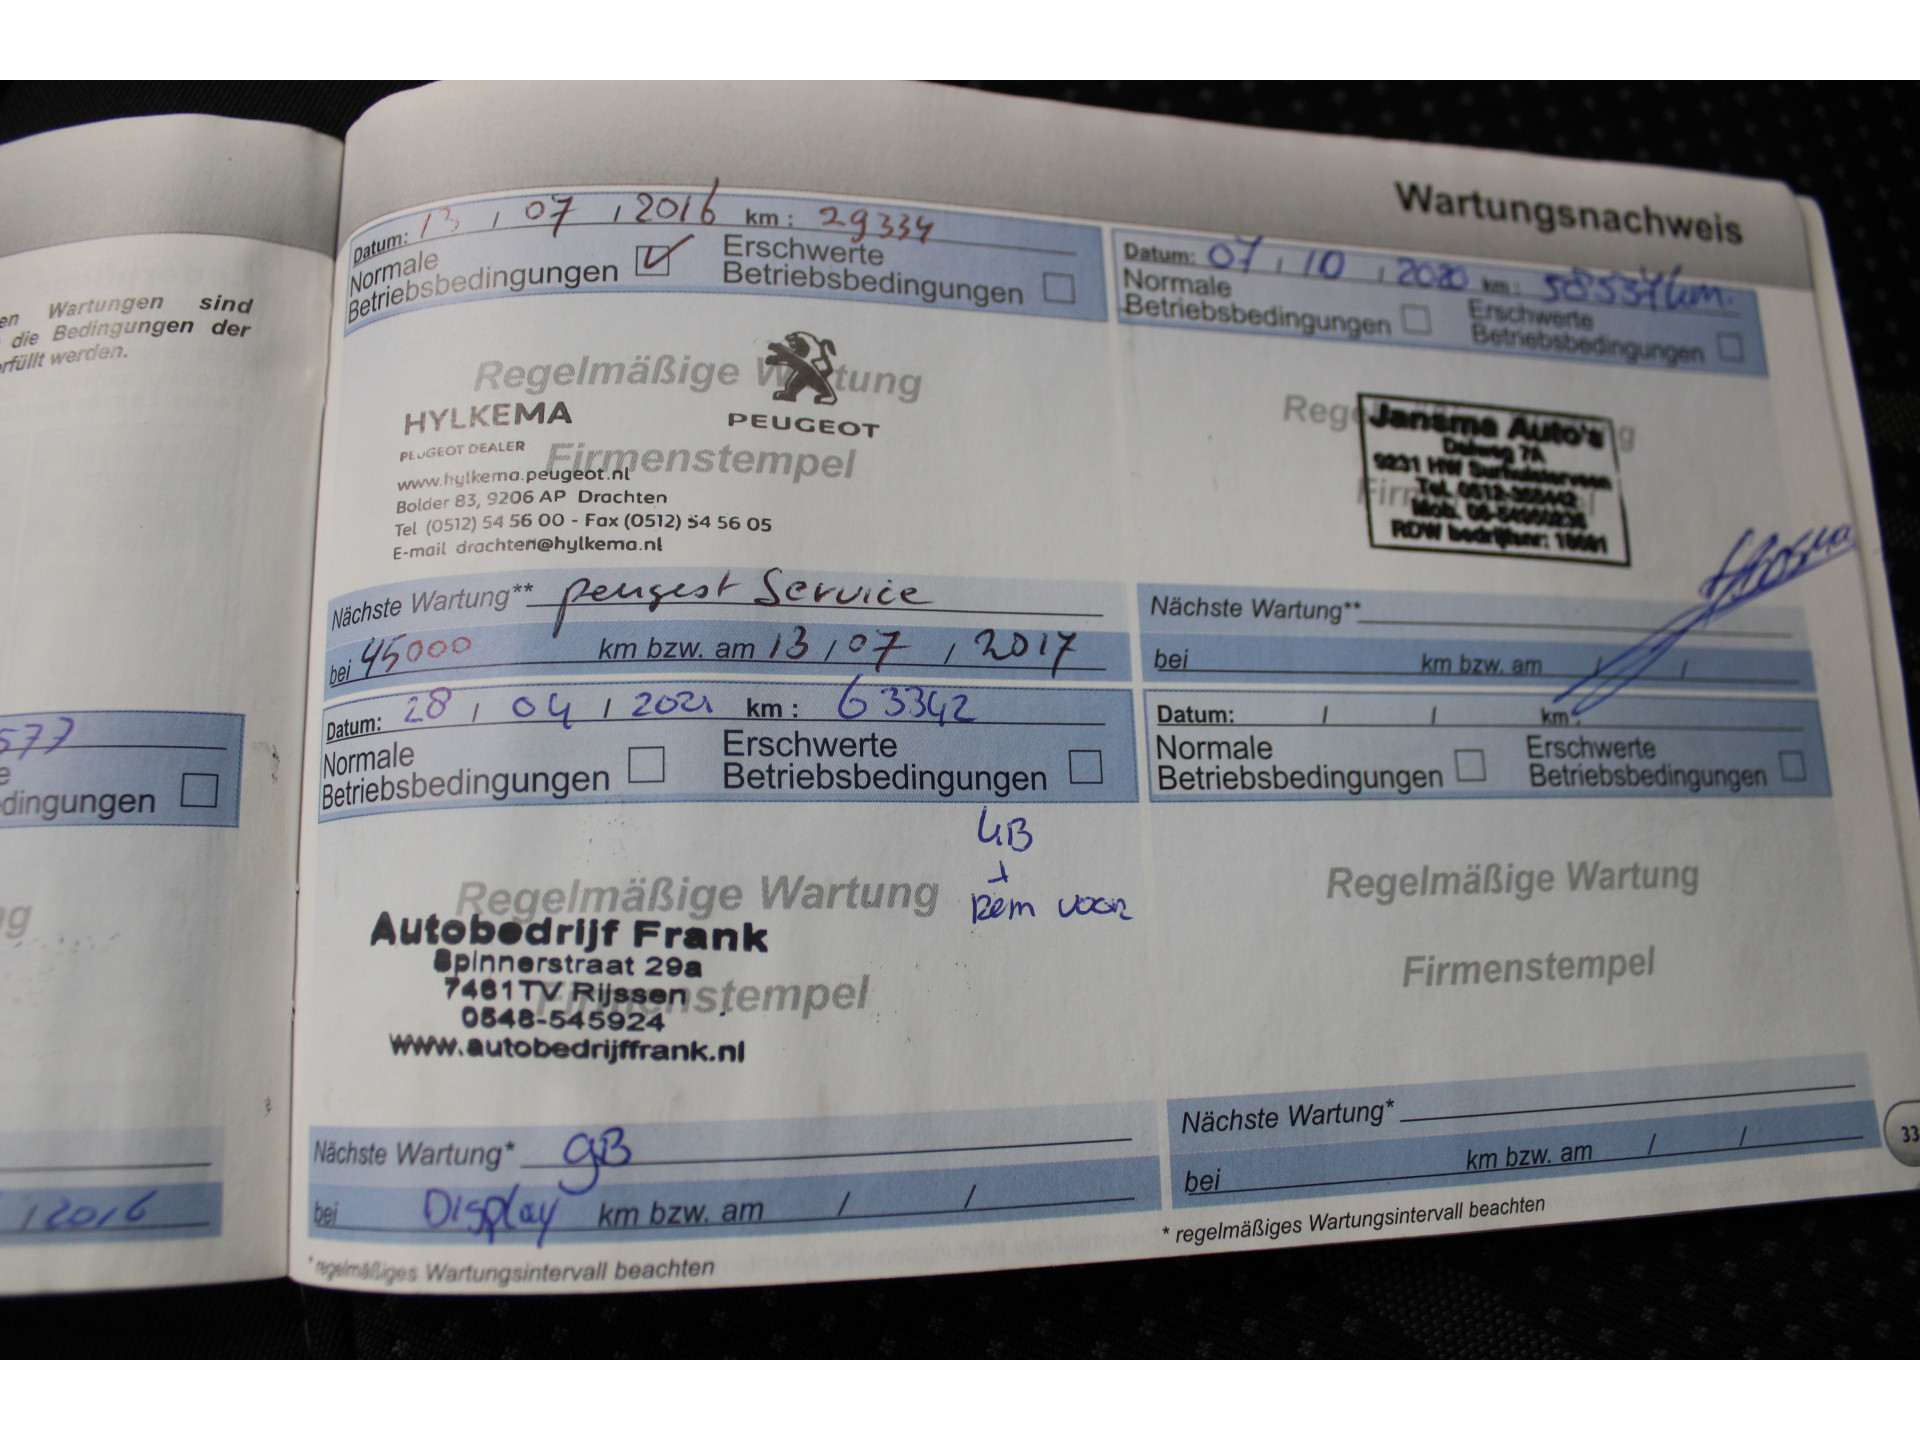 Wartungen sind
die Bedingungen der
erfüllt werden.
577
dingungen
2016
Wartungsnachweis
Datum: 13 / 07 / 2016 km : 29334
Normale Betriebsbedingungen
Erschwerte Betriebsbedingungen
Regelmäßige Wartung
PEUGEOT
HYLKEMA
PEUGEOT DEALER
Firmenstempel
www.hylkema.peugeot.nl
Bolder 83, 9206 AP Drachten
Tel (0512) 54 56 00 - Fax (0512) 54 56 05
E-mail drachten@hylkema.nl
Nächste Wartung** peugeot Service
bei 45000 km bzw. am 13 / 07 / 2017
Datum: 07 / 10 / 2020 km :
Normale Betriebsbedingungen
Erschwerte Betriebsbedingungen
Jansma Auto's
9231 HW Surhuisterveen
Nächste Wartung**
bei km bzw. am / /
Datum: 28 / 04 / 2021 km : 63342
Normale Betriebsbedingungen
Erschwerte Betriebsbedingungen
Rem voor
Regelmäßige Wartung
Autobedrijf Frank
Spinnerstraat 29a
7461TV Rijssen
Firmenstempel
0548-545924
www.autobedrijffrank.nl
Nächste Wartung* gB
bei Display km bzw. am / /
* regelmäßiges Wartungsintervall beachten
Datum: / / km :
Normale Betriebsbedingungen
Erschwerte Betriebsbedingungen
Regelmäßige Wartung
Firmenstempel
Nächste Wartung*
bei km bzw. am / /
* regelmäßiges Wartungsintervall beachten
33